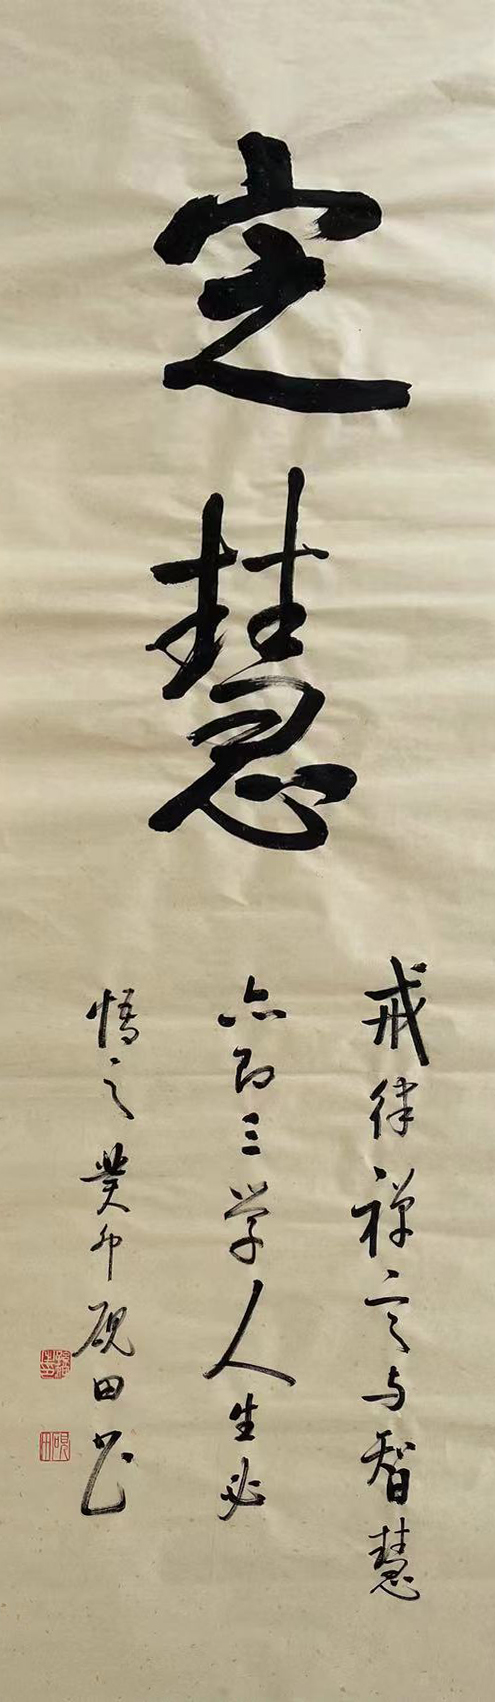 定慧
戒律禅定与智慧
亦即三学人生必
悟之癸卯砚田书
砚田